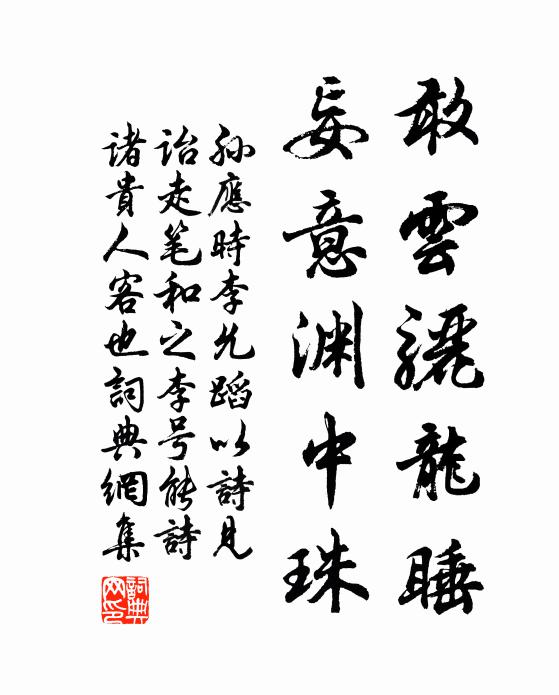 敢雲驪龍睡
妄意淵中珠
孫應時李允蹈以詩見
詒走笔和之李号能詩
诸貴人客也詞典網集
詞典网印